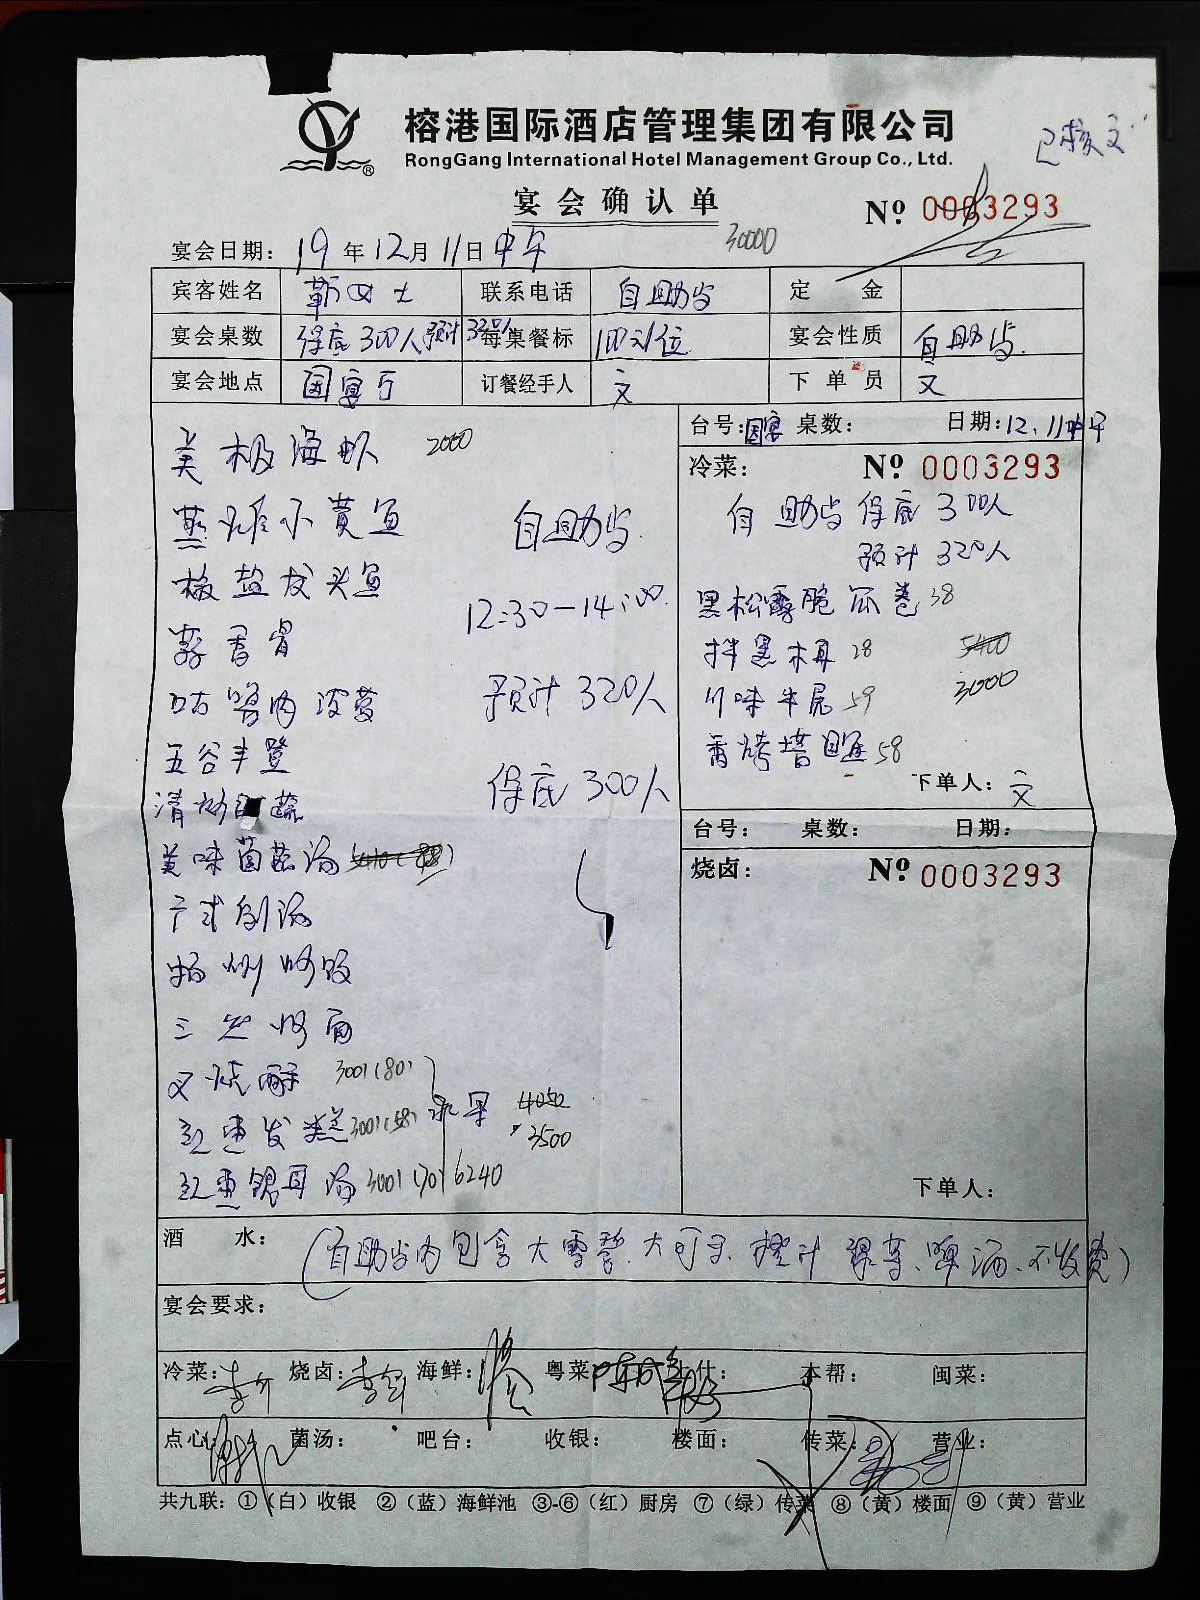 榕港国际酒店管理集团有限公司
RongGang International Hotel Management Group Co., Ltd.
已核 文
宴会确认单
№ 0003293
宴会日期: 19 年 12 月 11 日 中午
30000
宾客姓名 靳女士 联系电话 自助餐 定 金
宴会桌数 保底300人预计320人 每桌餐标 100元/位 宴会性质 自助餐
宴会地点 国宴厅 订餐经手人 文 下单员 文
美极海虾 2000
自助餐
椒盐龙头鱼
12:30—14:00
蒜香骨
咕咾肉 菠萝
预计 320人
五谷丰登
保底 300人
清炒时蔬
美味菌菇汤
扬州炒饭
三丝炒面
叉烧酥 300个(80)
红枣发糕 300个(58) 水果 4050
3500
红枣银耳汤 300个(70) 6240
台号: 国宴 桌数: 日期: 12.11中午
冷菜: № 0003293
自助餐 保底 300人
预计 320人
黑松露脆瓜卷 38
拌黑木耳 28 5400
川味牛展 59 3000
58
下单人: 文
台号: 桌数: 日期:
烧卤: № 0003293
下单人:
酒 水: (自助餐内包含大雪碧、大可乐、橙汁、绿茶、啤酒、不收费)
宴会要求:
冷菜: 烧卤: 海鲜: 粤菜: 本帮: 闽菜:
点心: 菌汤: 吧台: 收银: 楼面: 传菜: 营业:
共九联: ①(白)收银 ②(蓝)海鲜池 ③-⑥(红)厨房 ⑦(绿)传菜 ⑧(黄)楼面 ⑨(黄)营业